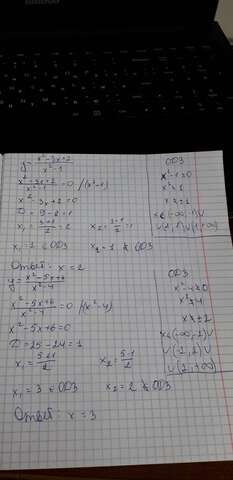 y = x²-3x+2 / x²-1
x²-3x+2 / x²-1 = 0 /(x²-1)
x²-3x+2=0
D = 9-8=1
x₁ = 3+1 / 2 = 2 x₂ = 3-1 / 2 = 1
x₁=2 ∈ ОДЗ x₂=1 ∉ ОДЗ
Ответ: x = 2
ОДЗ
x²-1≠0
x²≠1
x≠±1
x∈(-∞,-1)∪
∪(-1,1)∪(1,+∞)
y = x²-5x+6 / x²-4
x²-5x+6 / x²-4 = 0 /(x²-4)
x²-5x+6=0
D = 25-24=1
x₁ = 5+1 / 2 x₂ = 5-1 / 2
x₁ = 3 ∈ ОДЗ x₂ = 2 ∉ ОДЗ
Ответ: x = 3
ОДЗ
x²-4≠0
x²≠4
x≠±2
x∈(-∞,-2)∪
∪(-2,2)∪
∪(2,+∞)